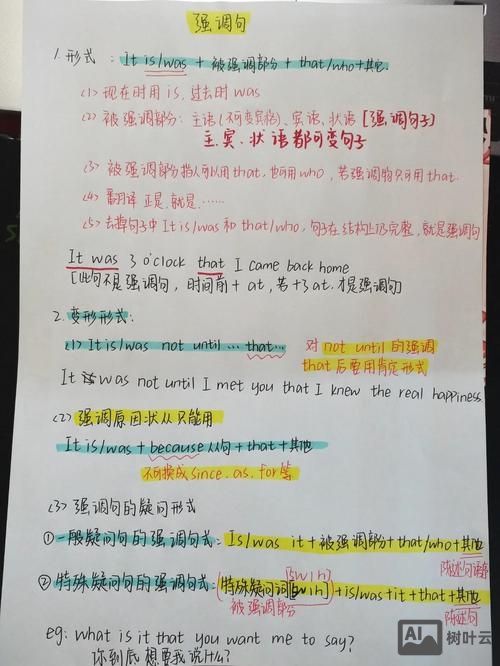 强调句
1. 形式: It is/was + 被强调部分 + that/who + 其它.
(1) 现在时用is, 过去时was
(2) 被强调部分: 主语(不可变宾格)、宾语、状语[强调句子]
主、宾、状语都可变句子
(3) 被强调部分指人可以用that, 也可用who, 若强调物只可用that.
(4) 翻译 正是, 就是……
(5) 去掉句子中It is/was和that/who, 句子在结构上仍完整, 就是强调句
It was 3 o'clock that I came back home
[此句不是强调句, 时间前+at, 若+了at, 才是强调句]
2. 变形形式:
(1) It is/was not until … that… 对not until的强调
that后要用肯定形式
It was not until I met you that I knew the real happiness.
(2) 强调原因状从只能用
It is/was + because从句 + that + 其他
不可换成since. as. for等
(3) 强调句的疑问形式
① 一般疑问句的强调句式: Is/was it + 被强调部分 + that/who + 其他
陈述句语序
② 特殊疑问句的强调句式: (特殊疑问词[5w1h]) + is/was + it + that + 其他
被强调部分 陈述句
eg: what is it that you want me to say?
你到底想要我说什么?
AI 树叶云